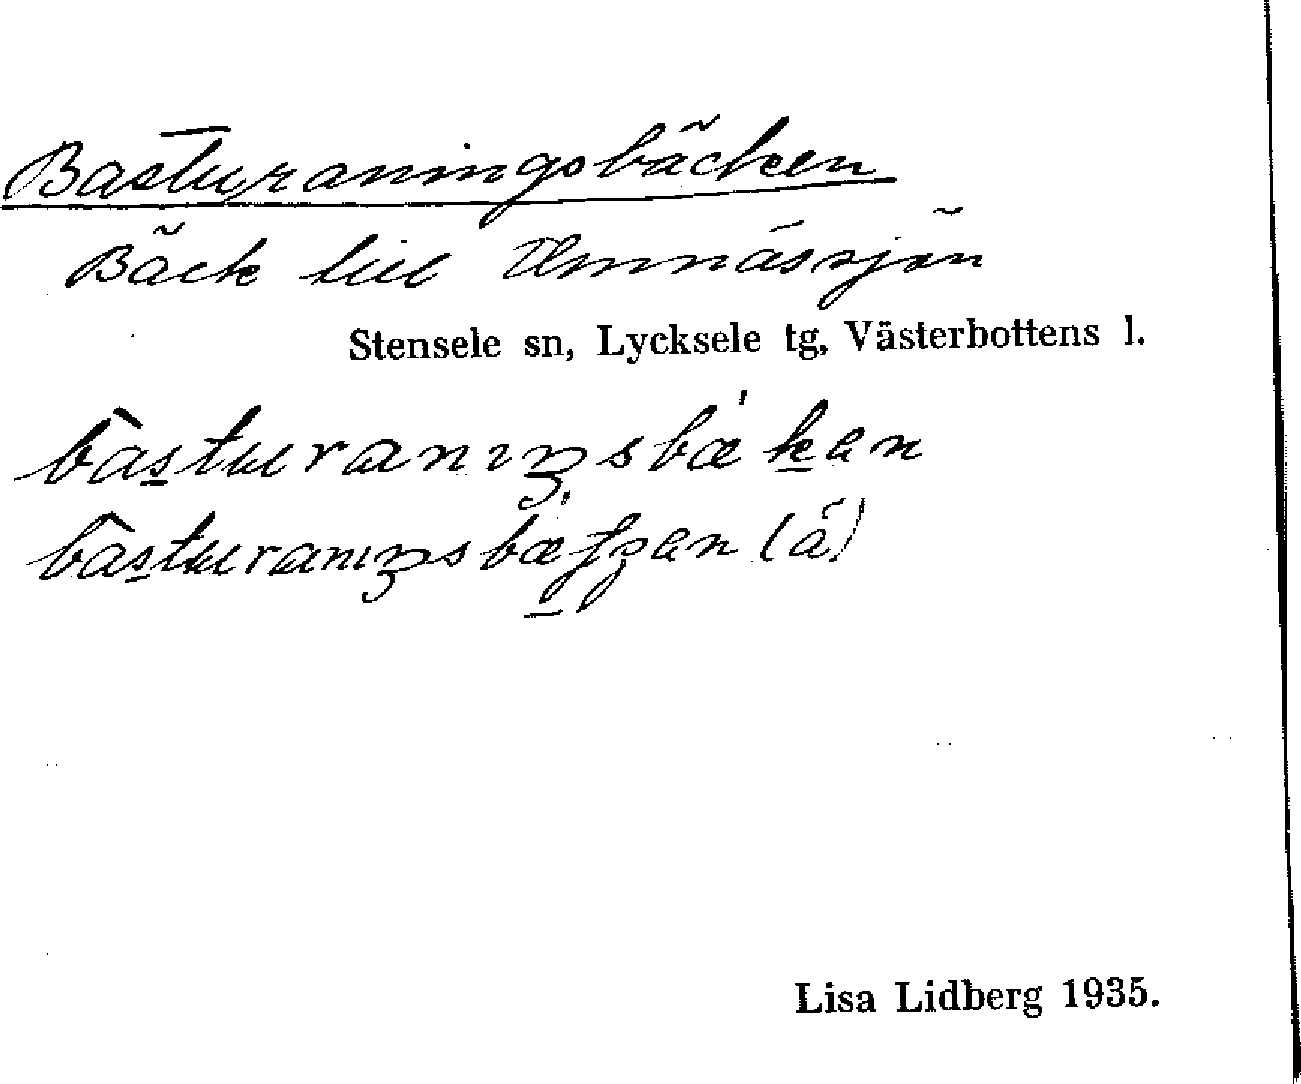 Basturaningsbäcken
Bäck till Umnässjön
Stensele sn, Lycksele tg, Västerbottens l.
basturanıŋsbæ'ken
basturanıŋsbæʄʒen (ä)
Lisa Lidberg 1935.